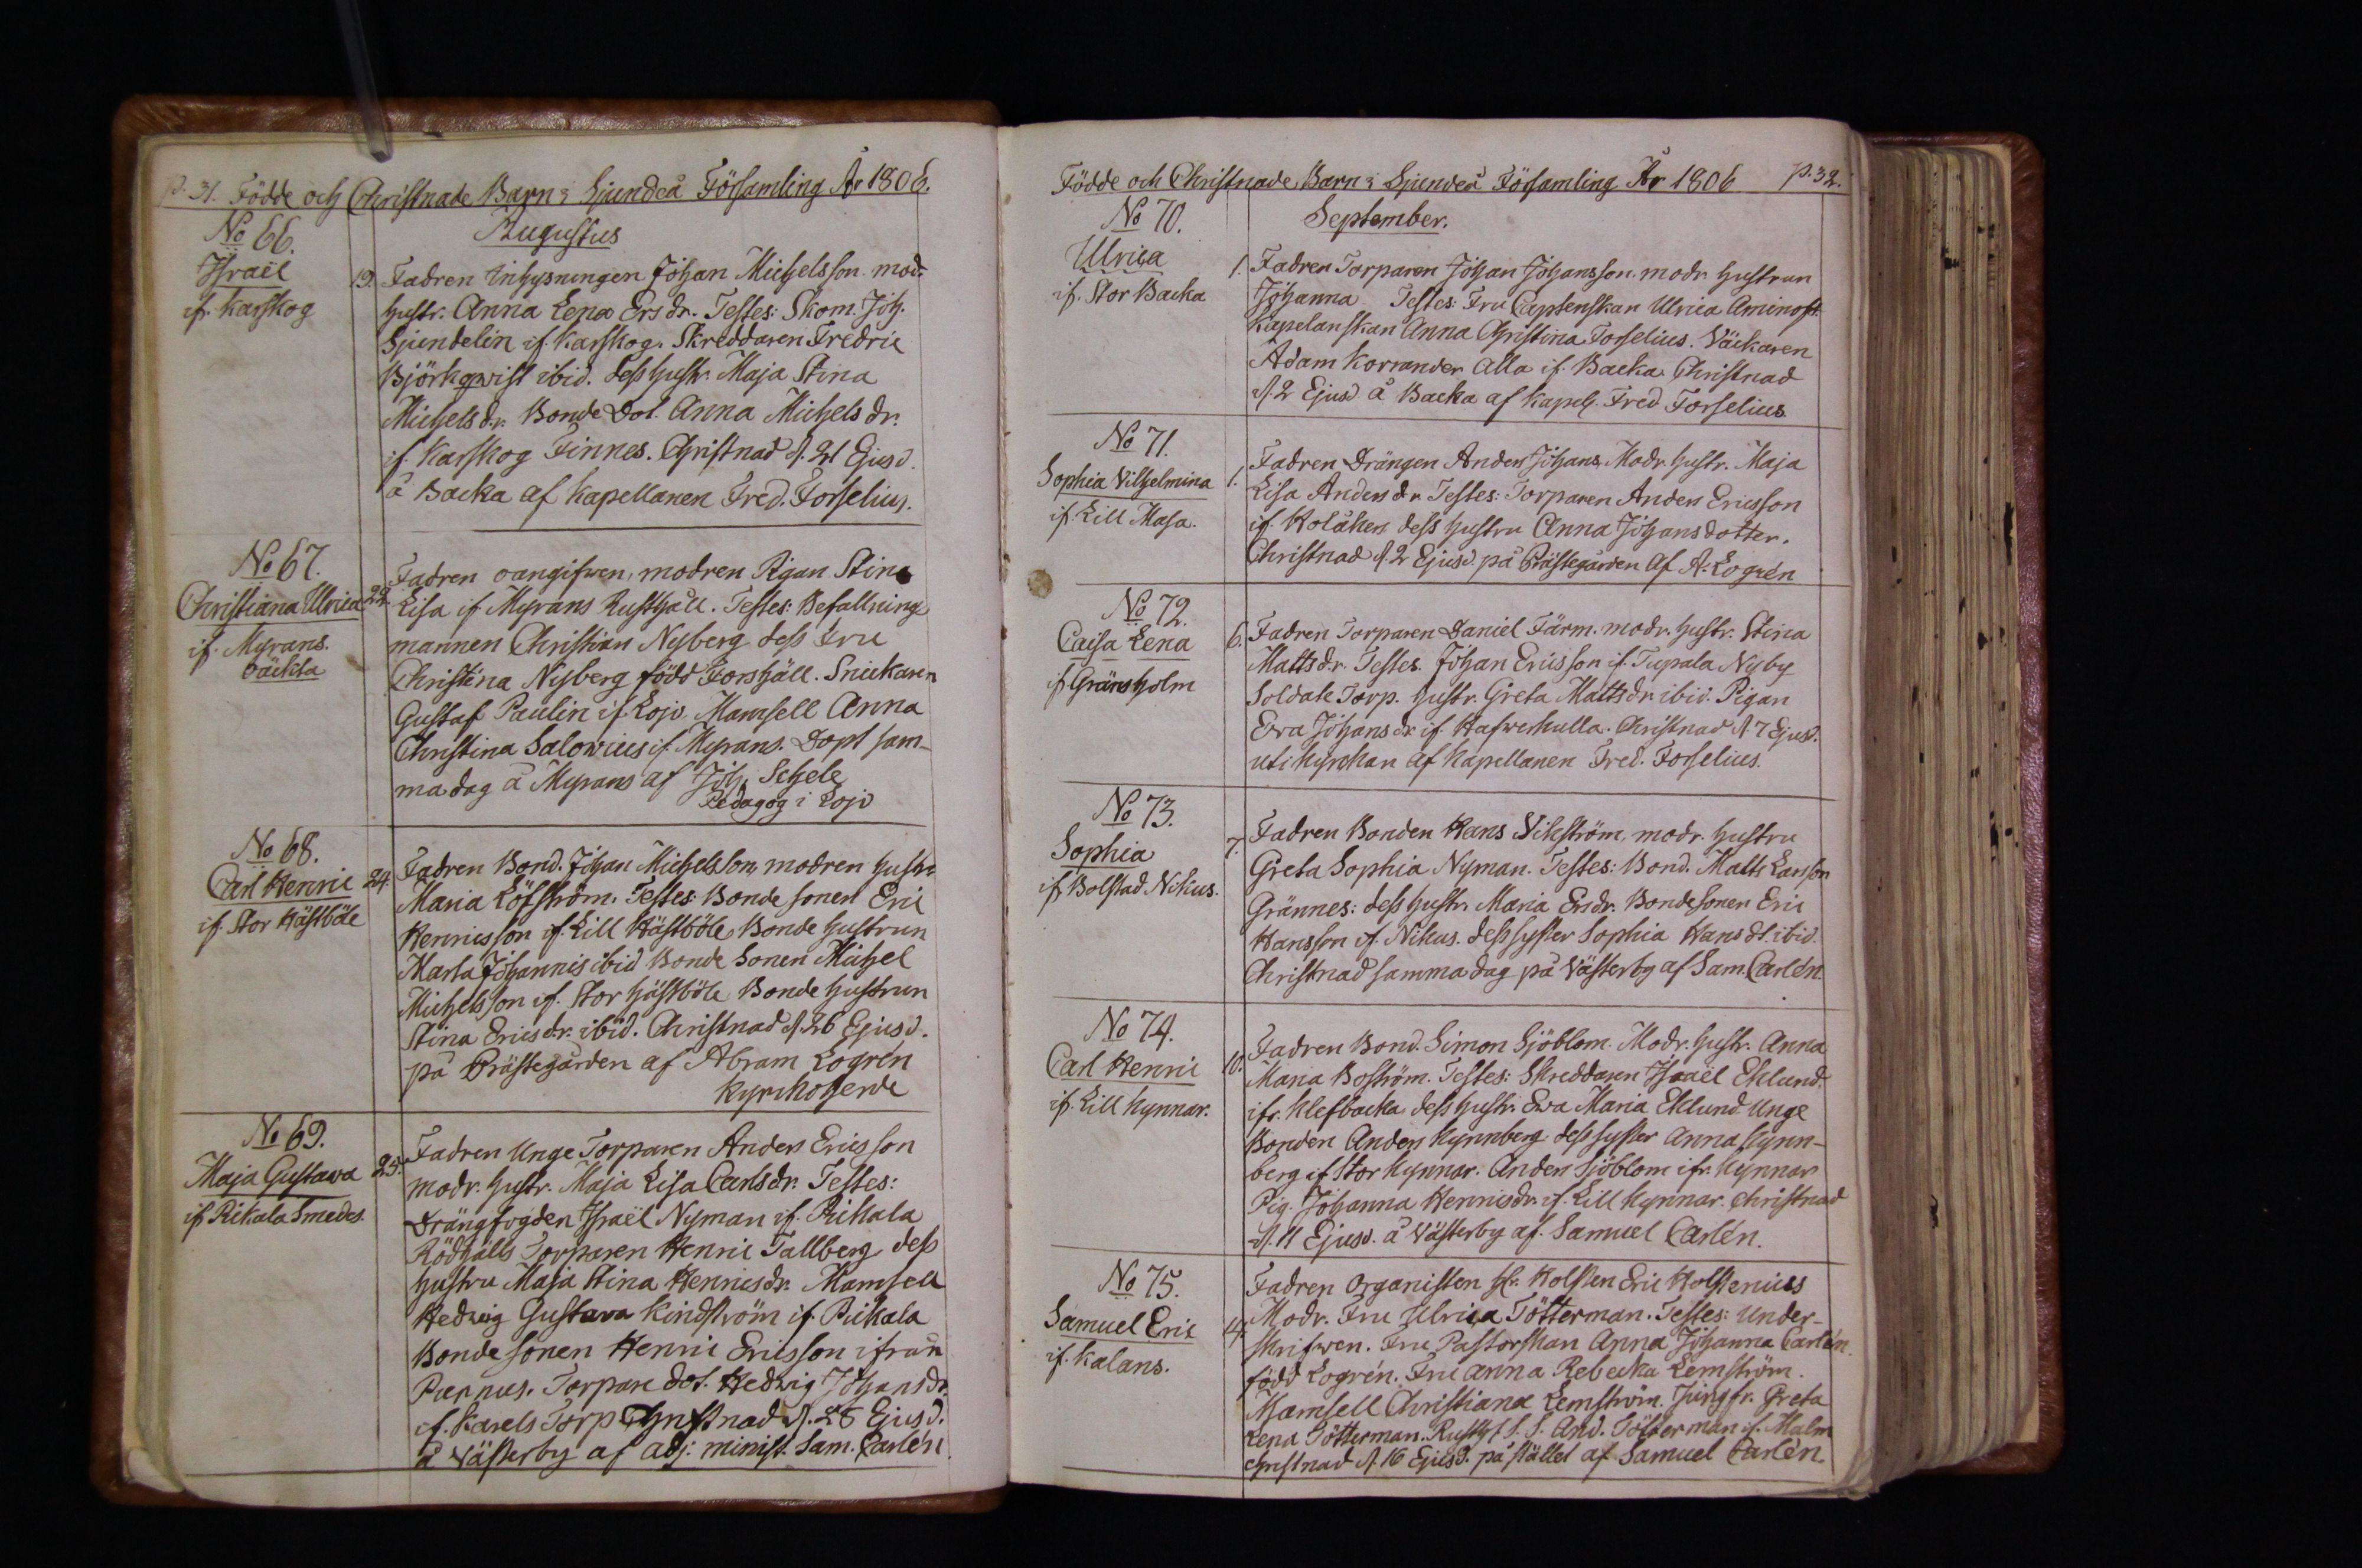 p. 31. Födde och Christnade Barn i Sjundeå Församling År 1806.
No 66.
Augustus
Israël
if. Karskog
19. Fadren Inhysningen Johan Michelsson. modr.
hustr. Anna Lena Ersdr. Testes: Skom. Joh.
Sjundelin if. Karskog. Skreddaren Fredric
Björkqwist ibid. dess hustr. Maja Stina
Michelsdr. Bonde Dot. Anna Michelsdr.
if. Karskog Finnes. Christnad d. 21 Ejusd.
å Backa af Kapellanen Fred. Forselius.
No 67.
Christiana Ulrica
if. Myrans.
oäckta
22 Fadren oangifven, modren Pigan Stina
Lisa if Myrans Rusthåll. Testes: Befallnings
mannen Christian Nyberg dess Fru
Christina Nyberg född Forshäll. Snickaren
Gustaf Paulin if Lojo. Mamsell Anna
Christina Salovius if. Myrans. Döpt sam-
ma dag å Myrans af Joh. Schele
Pedagog i Lojo
No 68.
Carl Henric
if. Stor Hästböle
24. Fadren Bond. Johan Michelsson, modren hustr.
Maria Löfström. Testes: Bonde sonen Eric
Henricsson if. Lill Hästböle, Bonde hustrun
Marta Johannis ibid Bonde Sonen Michel
Michelsson if. Stor Hästböle Bonde hustrun
Stina Ericsdr. ibid. Christnad d. 26 Ejusd.
på Prästegården af Abram Logrén
Kyrkoherde
No 69.
Maja Gustava
if Pikala Smedes.
25. Fadren Unge Torparen Anders Ericsson
modr. hustr. Maja Lisa Carlsdr. Testes:
Drängfogden Israël Nyman if. Pikala
Rödhälls Torparen Henric Tallberg dess
hustru Maja Stina Henricsdr. Mamsell
Hedvig Gustava Kindström if. Pickala
Bonde sonen Henric Ericsson ifrån
Purnus. Torpare dot. Hedvig Johansdr.
if. Karels Torp Christnad d. 28 Ejusd.
å Västerby af adj. minist. Sam. Carlén.
Födde och Christnade Barn i Sjundeå Församling År 1806 p. 32.
No 70.
September.
Ulrica
if. Stor Backa
1. Fadren Torparen Johan Johansson. modr. hustrun
Johanna Testes: Fru Captenskan Ulrica Aminoff.
Kapelanskan Anna Christina Forselius. Väckaren
Adam Korrander Alla if. Backa. Christnad
d. 2 Ejusd. å Backa af Kapel. Fred Forselius
No 71.
Sophia Vilhelmina
if. Lill Masa.
1. Fadren Drängen Anders Johans. Modr. hustr. Maja
Lisa Andersdr. Testes: Torparen Anders Ericsson
if. Kolåken dess hustru Anna Johansdotter.
Christnad d. 2 Ejusd. på Prästegården af A. Logrén
No 72.
Caisa Lena
if Gränsholm
6. Fadren Torparen Daniel Färm. modr. hustr. Stina
Mattsdr. Testes. Johan Ericsson if. Tupala Nyby
Soldate Torp. hustr. Greta Mattsdr. ibid. Pigan
Eva Johansdr. if. Hafverkulla. Christnad d. 7 Ejusd.
uti Kyrckan af Kapellanen Fred. Forselius.
No 73.
Sophia
if Bolstad Nikus.
7. Fadren Bonden Hans Vikström, modr. hustru
Greta Sophia Nyman. Testes: Bond. Matts Larsson
Grännes: dess hustr. Maria Ersdr. Bondesonen Eric
Hansson if. Nikus. dess syster Sophia Hansdr. ibid.
Christnad samma dag på Västerby af Sam. Carlén.
No 74.
Carl Henric
if. Lill Kynnar.
10. Fadren Bond. Simon Sjöblom. Modr. hustr. Anna
Maria Boström. Testes: Skreddaren Israël Eklund.
ifr. Klefbacka dess hustr. Eva Maria Eklund Unge
Bonden Anders Kynnberg dess syster Anna Kynn-
berg if Stor Kynnar. Anders Sjöblom ifr. Kynnar
Pig. Johanna Henricsdr. if. Lill Kynnar. Christnad
d. 11 Ejusd. å Västerby af. Samuel Carlén.
No 75.
Samuel Eric
if. Kalans.
14. Fadren Organisten Hr. Holsten Eric Holstenius
Modr. Fru Ulrica Tötterman. Testes: Under-
skrifven. Fru Pastorskan Anna Johanna Carlén.
född Logrén. Fru Anna Rebecka Lemström.
Mamsell Christiana Lemström. Jungfr. Greta
Lena Tötterman. And. Tötterman if. Malm
Christnad d. 16 Ejusd. på stället af Samuel Carlén.